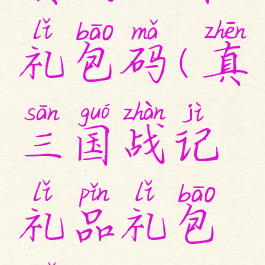 lǐ bāo mǎ zhēn
礼包码(真
sān guó zhàn jì
三国战记
lǐ pǐn lǐ bāo
礼品礼包